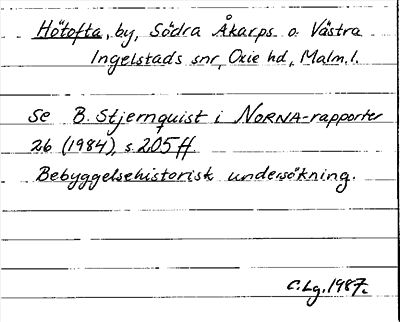 Hötofta, by, Södra Åkarps o. Västra
Ingelstads snr, Oxie hd, Malm. l.
Se B. Stjernquist i NORNA-rapporter
26 (1984) s. 205 ff.
Bebyggelsehistorisk undersökning.
C. Lg. 1987.